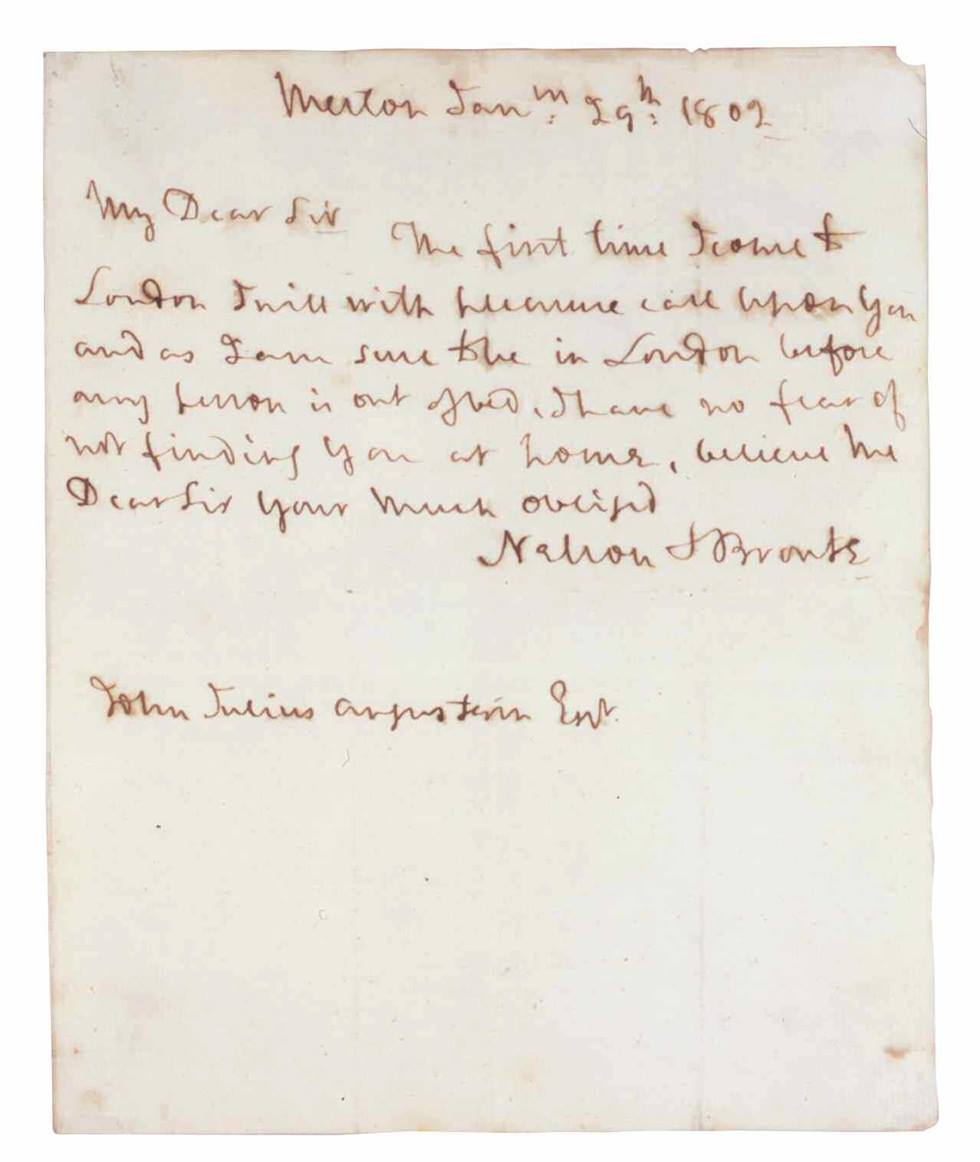 Merton Jany: 29th: 1802
My Dear Sir
The first time I come to
London I will with pleasure call upon You
and as I am sure to be in London before
any person is out of bed, I have no fear of
not finding You at home, believe Me
Dear Sir Your Much obliged
Nelson & Bronte
John Julius Angustein Esqr.